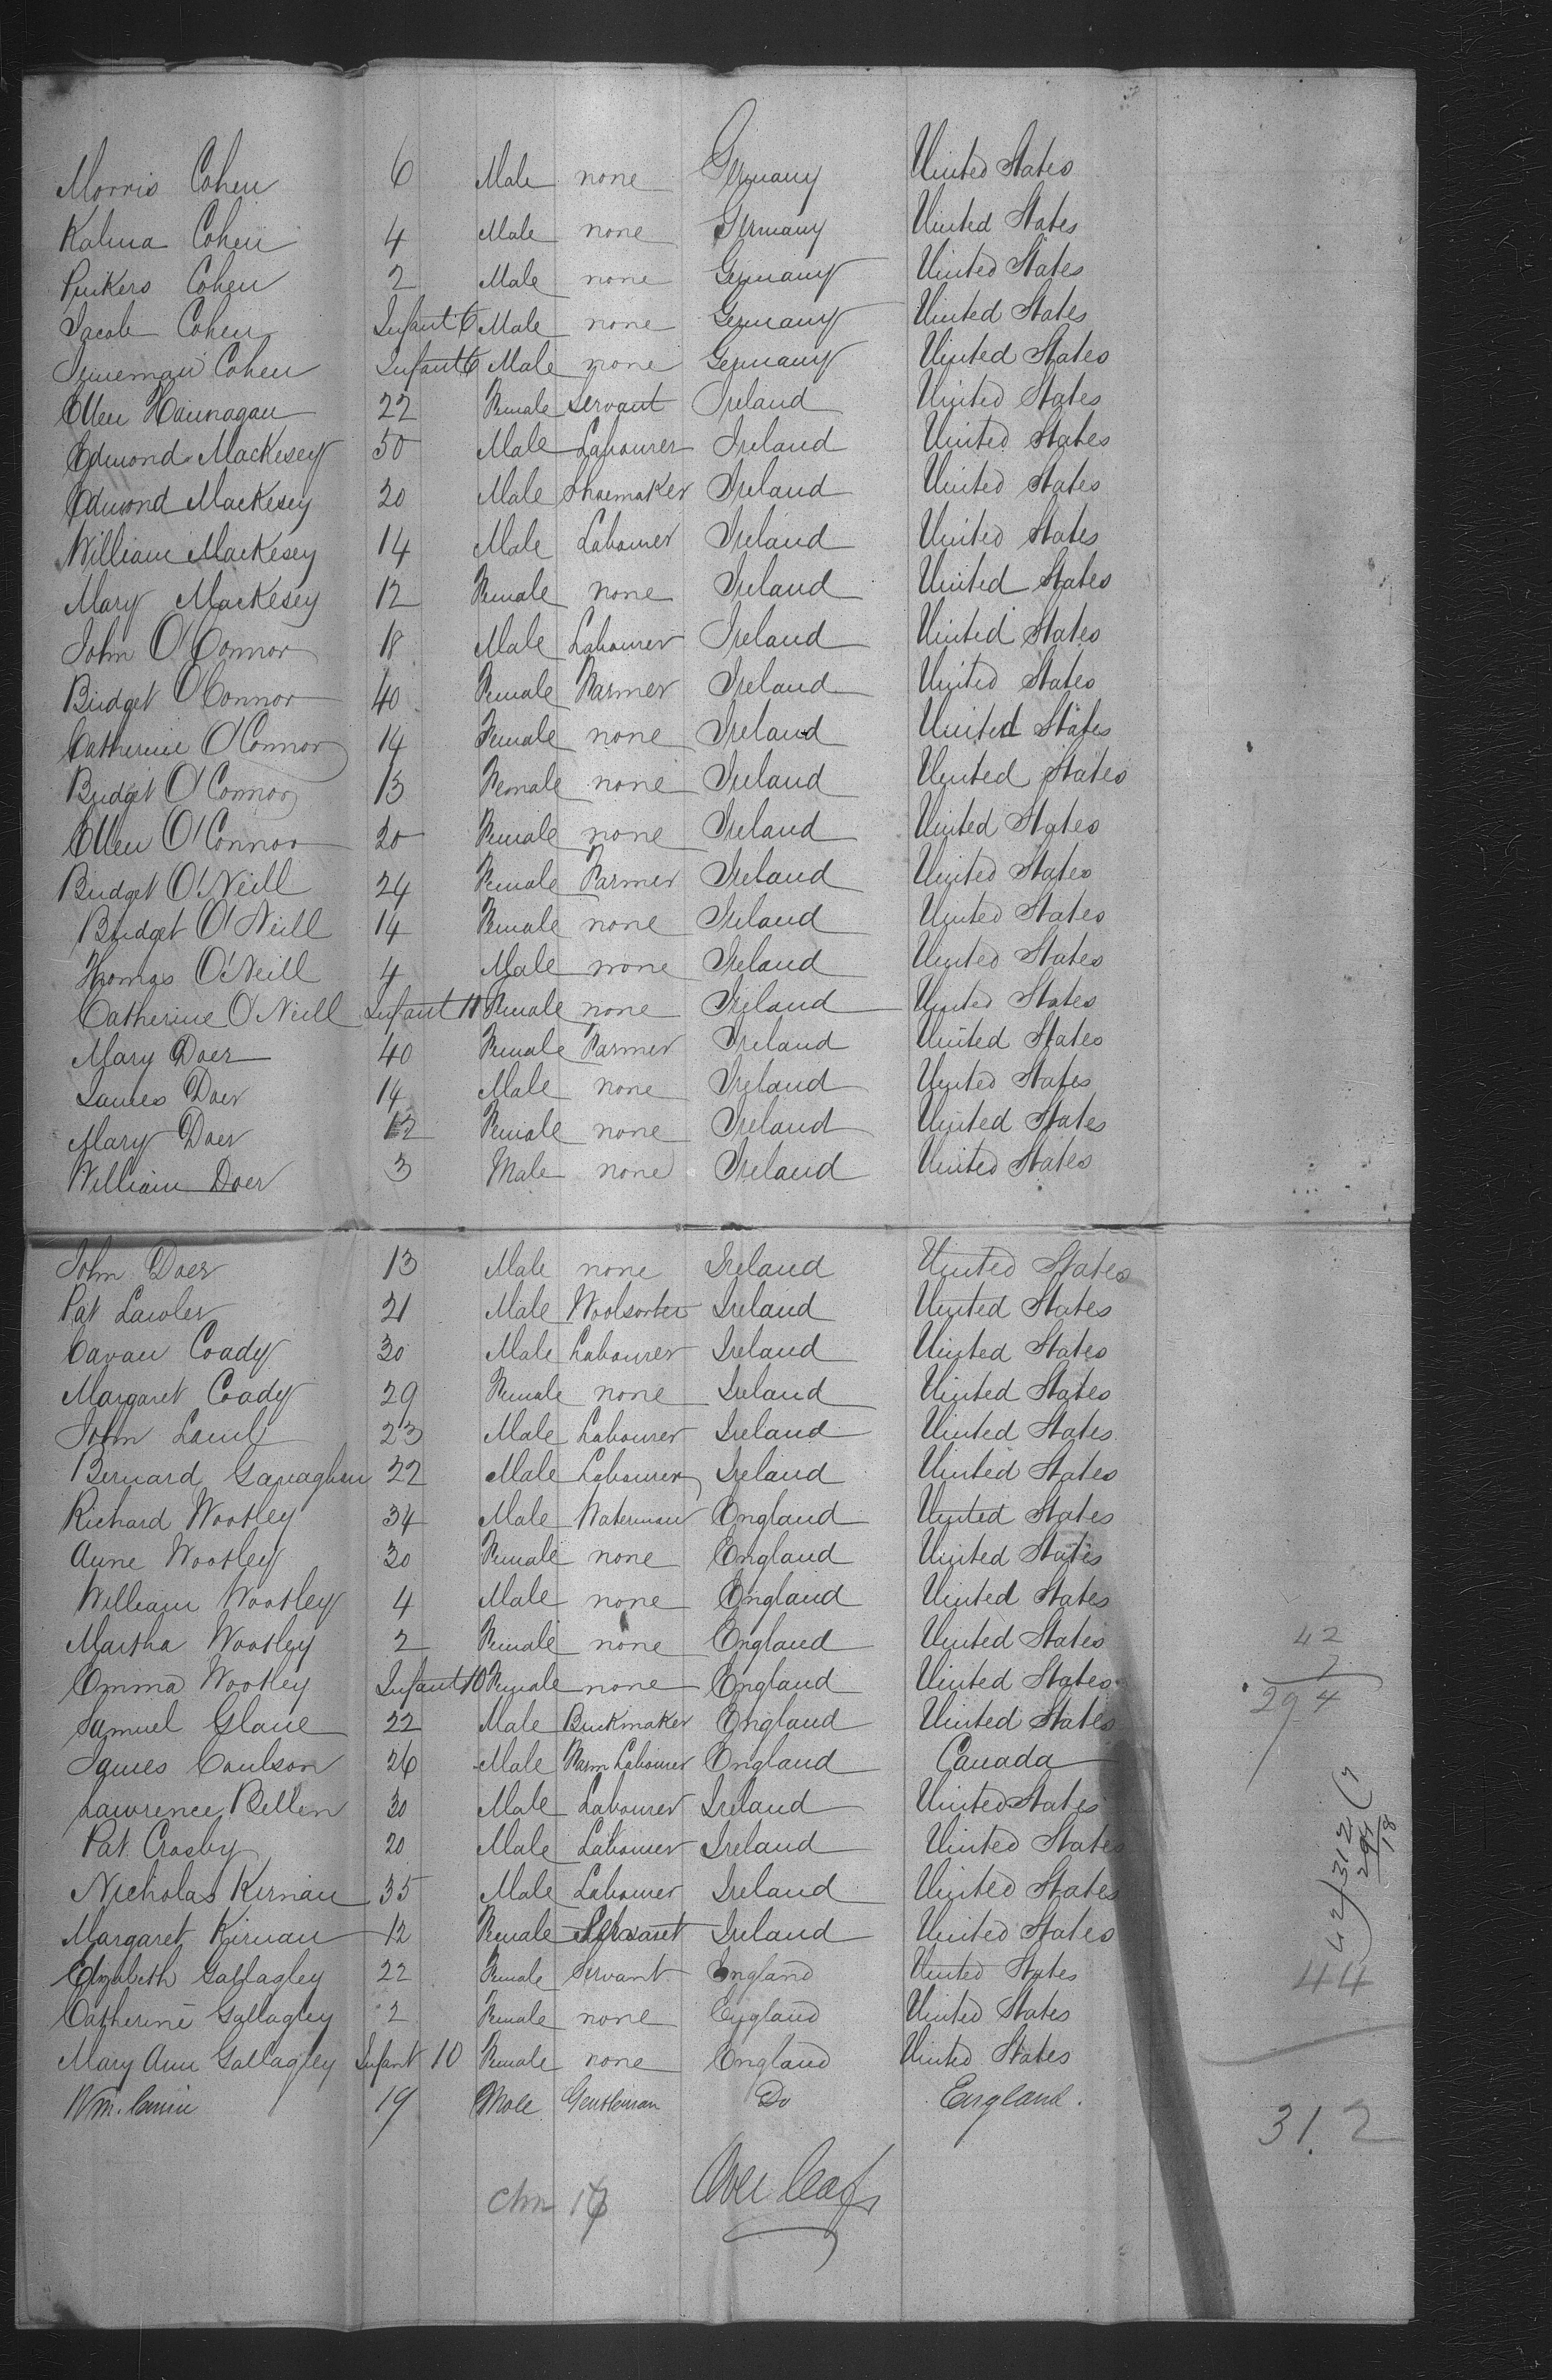 Morris Cohen 6 Male none Germany United States
Kalma Cohen 4 Male none Germany United States
Pinkers Cohen 2 Male none Germany United States
Jacob Cohen Infant 6 Male none Germany United States
Cohen Infant 6 Male none Germany United States
Ellen Hannagan 22 Female Servant Ireland United States
Edmond Mackesey 50 Male Labourer Ireland United States
Edmond Mackesey 20 Male Shoemaker Ireland United States
William Mackesey 14 Male Labourer Ireland United States
Mary Mackesey 12 Female none Ireland United States
John O'Connor 18 Male Labourer Ireland United States
Bridget O'Connor 40 Female Farmer Ireland United States
Catherine O'Connor 14 Female none Ireland United States
Bridget O'Connor 13 Female none Ireland United States
Ellen O'Connor 20 Female none Ireland United States
Bridget O'Neill 24 Female Farmer Ireland United States
Bridget O'Neill 14 Female none Ireland United States
Thomas O'Neill 4 Male none Ireland United States
Catherine O'Neill Infant 11 Female none Ireland United States
Mary Doer 40 Female Farmer Ireland United States
James Doer 14 Male none Ireland United States
Mary Doer 12 Female none Ireland United States
William Doer 3 Male none Ireland United States
John Doer 13 Male none Ireland United States
Pat Lawler 21 Male Woolsorter Ireland United States
Cavan Coady 30 Male Labourer Ireland United States
Margaret Coady 29 Female none Ireland United States
John Lamb 23 Male Labourer Ireland United States
Bernard Ganaghan 22 Male Labourer Ireland United States
Richard Wootley 34 Male Waterman England United States
Anne Wootley 30 Female none England United States
William Wootley 4 Male none England United States
Martha Wootley 2 Female none England United States
Emma Wootley Infant 10 Female none England United States
Samuel Glane 22 Male Brickmaker England United States
James Coulson 26 Male Farm Labourer England Canada
Lawrence Bellen 30 Male Labourer Ireland United States
Pat Crosby 20 Male Labourer Ireland United States
Nicholas Kirnan 35 Male Labourer Ireland United States
Margaret Kirnan 12 Female Servant Ireland United States
Elizabeth Gallagley 22 Female Servant England United States
Catherine Gallagley 2 Female none England United States
Mary Ann Gallagley Infant 10 Female none England United States
Wm. 19 Male Gentleman Do England.
Over leaf
42
7
294
42) 312 (7
294
18
44
312